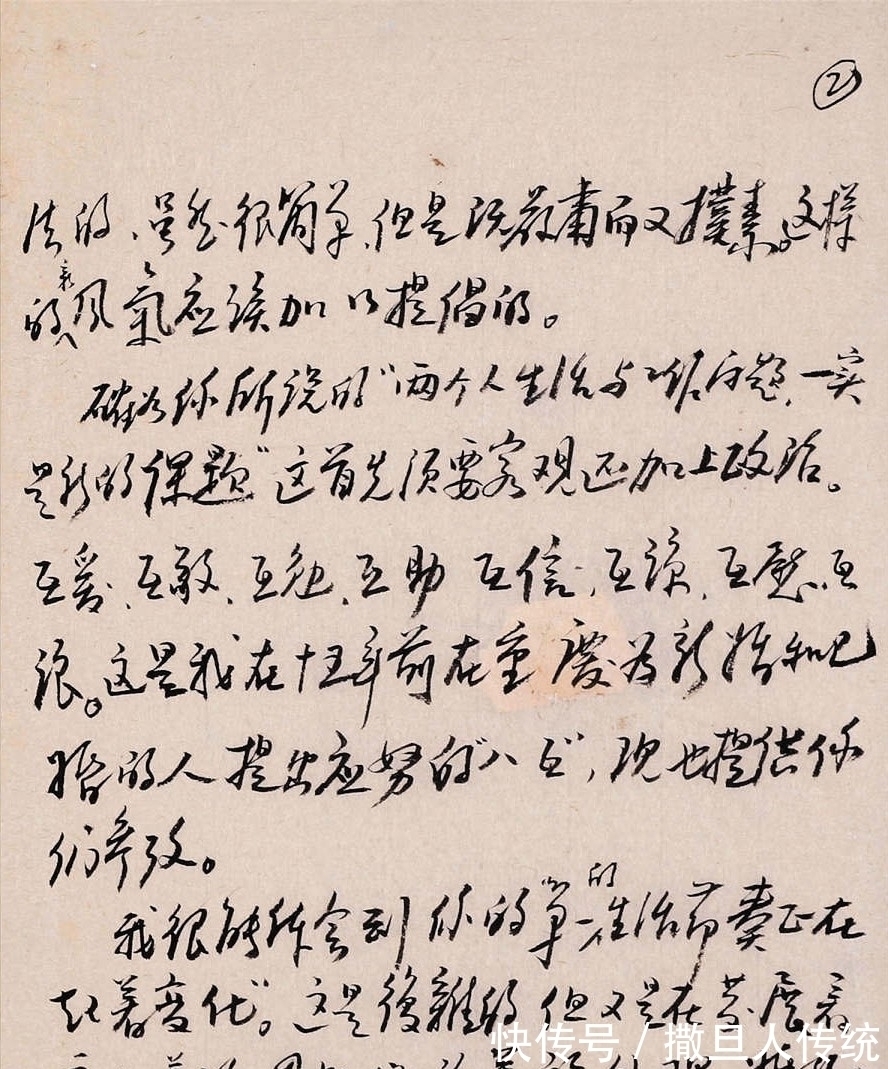 ②
法的、虽然很简单,但是既严肃而又撲素。这样
的良风氣应该加以提倡的。
确如你所说的"两个人生活与工作问题,一实
是新的课题"这首先须要客观还加上政治。
互爱、互敬、互勉、互助 互信、互谅、互慰、互
让。这是我在十五年前在重慶为新婚和已
婚的人提出应努的"八互",现也提供你
们参攷。
我很能体会到你的"单一的生活节奏正在
起着变化"。这是復雜的但又是在发展着
快传号 / 撒旦人传统